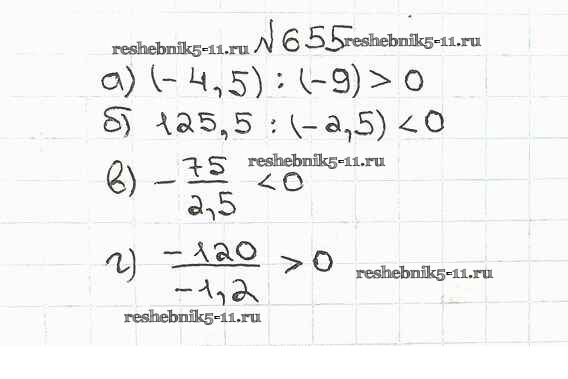 reshebnik5-11.ru №655 reshebnik5-11.ru
а) (-4,5) : (-9) > 0
б) 125,5 : (-2,5) < 0
reshebnik5-11.ru
в) - 75/2,5 < 0
г) -120/-1,2 > 0
reshebnik5-11.ru
reshebnik5-11.ru